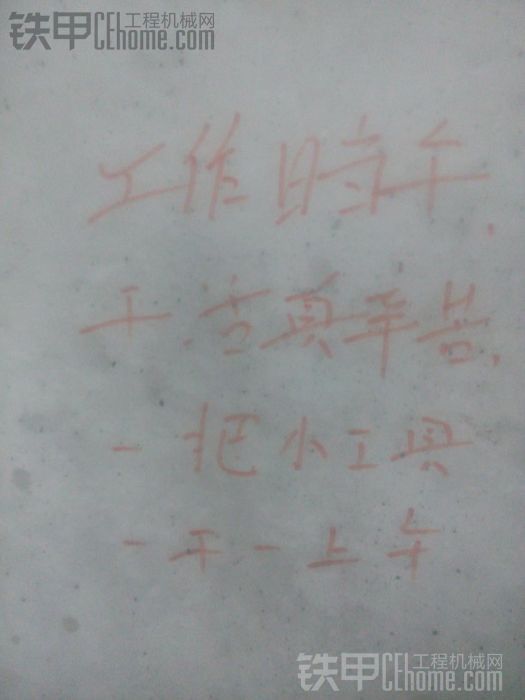 铁甲 工程机械网
CEhome.com
工作时午,
干活真辛苦,
一把小工具
一干一上午
铁甲 工程机械网
CEhome.com